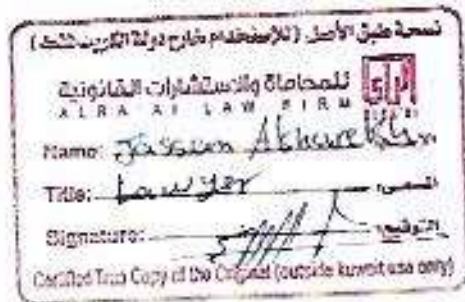 نسخة طبق الأصل (للإستخدام خارج دولة الكويت فقط)
للمحاماة والاستشارات القانونية
ALRAAI LAW FIRM
Name: Jasseim
Title: Lawyer المسمى:
Signature: التوقيع:
Certified True Copy of the Original (outside kuwait use only)